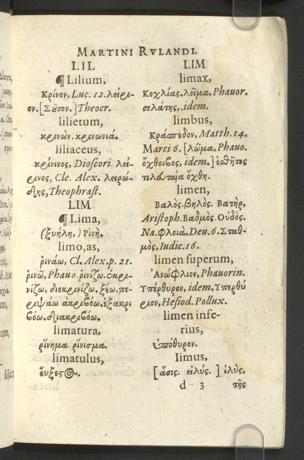 MARTINI RVLANDI.
LIL
¶ Lilium,
Κρίνον, Luc. 12. λείρι-
ον. [Σῦσον.] Theocr.
lilietum,
κρινών. κρινωνιά.
liliaceus,
κρίνινος, Dioscori. λεί-
ρινος, Cle. Alex. λειρώ-
δης, Theophrast.
LIM
¶ Lima,
(ξυήλη,) Ρίνη.
limo, as,
ῥινάω, Cl. Alex. p. 21.
ῥινῶ, Phauo. ῥινίζω.
limatura,
ῥίνημα. ῥίνισμα.
limatulus,
LIM
limax,
Κοχλίας. λεῖμαξ, Phauor.
σελάτης, idem.
limbus,
Κράσπεδον, Matth. 14.
Marci 6. [λῶμα, Phauo.
ὄχθοιβος, idem.] ἐσθῆτος
ὄχθη.
limen,
Βαλός. Βηλός. Βατὴρ,
Aristoph. Βαθμὸς. Οὐδὸς.
Να. Φλειὰ. Deu. 6. Σταθ-
μὸς, Iudic. 16.
limen superum,
Ἀνώφλιον, Phauorin.
Ὑπέρθυρον, idem. Ὑπερθύ
ριον, Hesiod. Pollux.
limen infe-
rius,
ὑπόθυρον.
limus,
[ἄσις. εἰλύς.] ἰλὺς.
d 3 τῆς